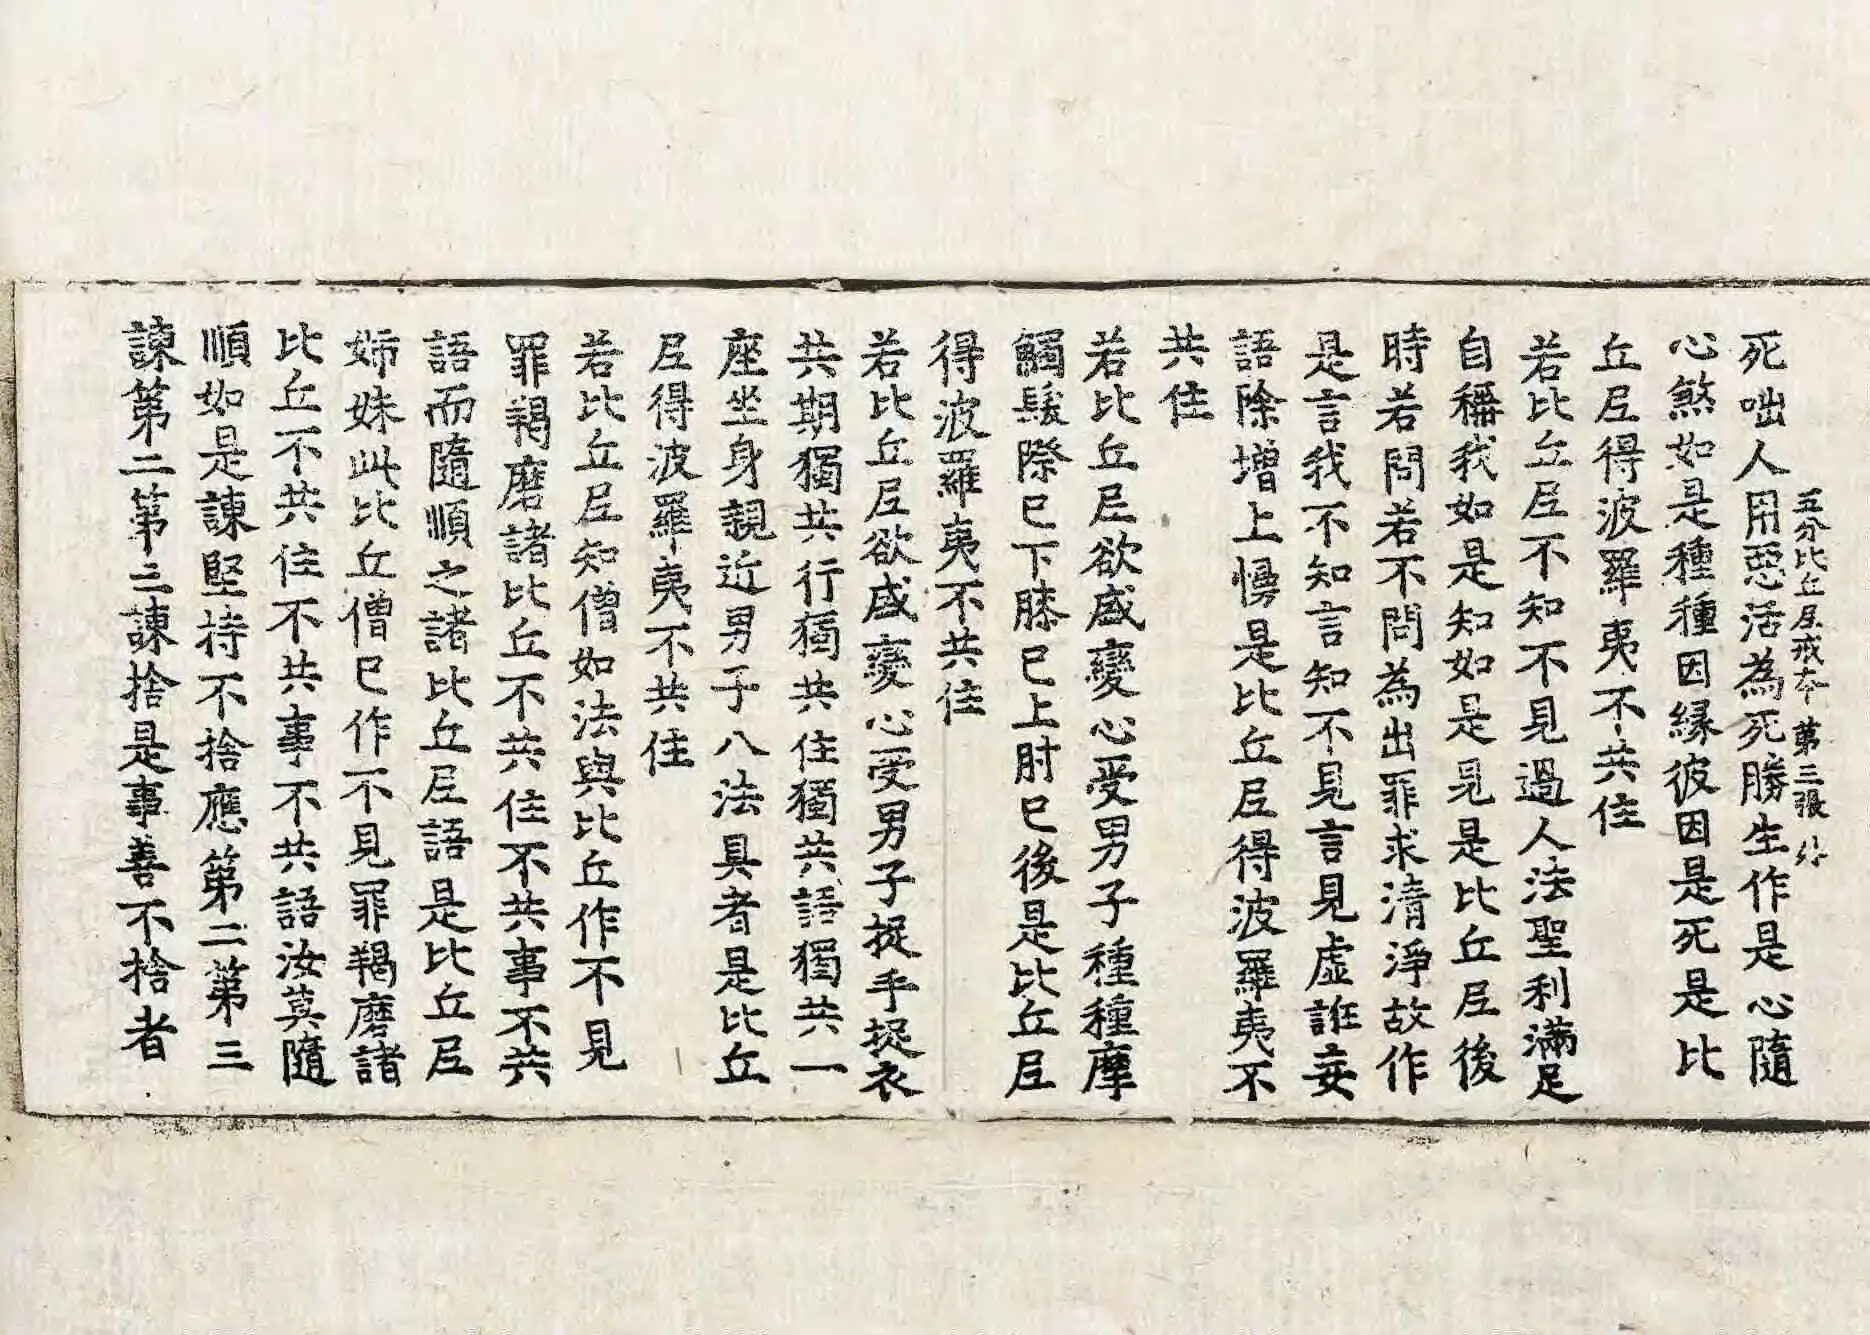 五分比丘尼戒本 第三張 外
死咄人用惡活為死勝生作是心隨
心煞如是種種因緣彼因是死是比
丘尼得波羅夷不共住
若比丘尼不知不見過人法聖利滿足
自稱我如是知如是見是比丘尼後
時若問若不問為出罪求清淨故作
是言我不知言知不見言見虛誑妄
語除增上慢是比丘尼得波羅夷不
共住
若比丘尼欲盛變心受男子種種摩
觸髮際已下膝已上肘已後是比丘尼
得波羅夷不共住
若比丘尼欲盛變心受男子捉手捉衣
共期獨共行獨共住獨共語獨共一
座坐身親近男子八法具者是比丘
尼得波羅夷不共住
若比丘尼知僧如法與比丘作不見
罪羯磨諸比丘不共住不共事不共
語而隨順之諸比丘尼語是比丘尼
姊妹此比丘僧已作不見罪羯磨諸
比丘不共住不共事不共語汝莫隨
順如是諫堅持不捨應第二第三
諫第二第三諫捨是事善不捨者